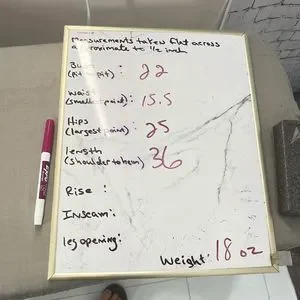 measurements taken flat across
approximate to 1/2 inch
Bust: 22
(pit to pit)
Waist: 15.5
(smallest point)
Hips: 25
(largest point)
length 36
(shoulder to hem)
Rise:
Inseam:
leg opening:
Weight: 18 oz